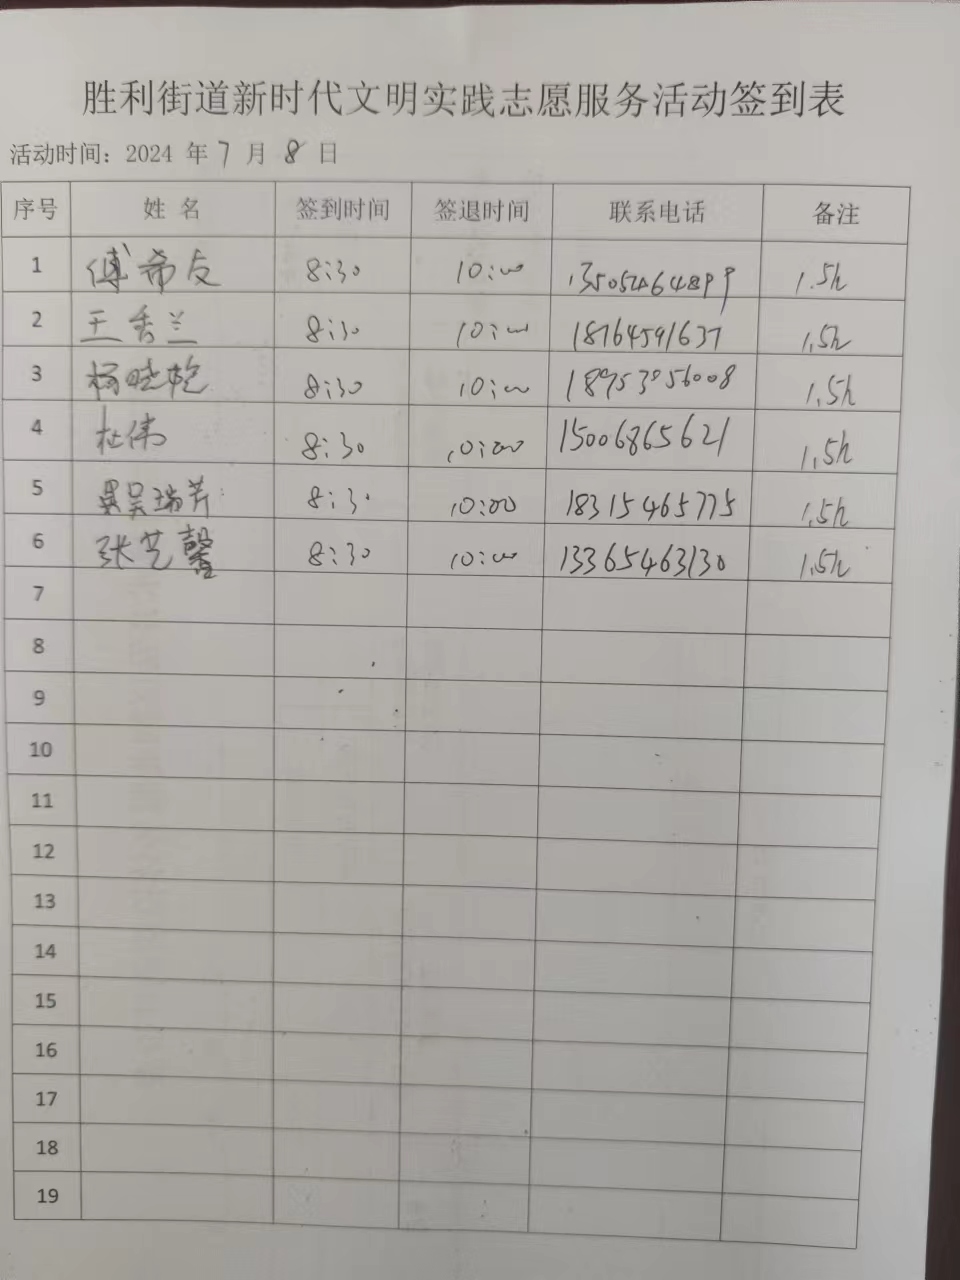 胜利街道新时代文明实践志愿服务活动签到表
活动时间：2024 年 7 月 8 日
序号 姓 名 签到时间 签退时间 联系电话 备注
1 傅希友 8:30 10:00 13505464899 1.5h
2 王秀兰 8:30 10:00 18764591637 1.5h
3 杨晓乾 8:30 10:00 18953856008 1.5h
4 杜伟 8:30 10:00 15006865621 1.5h
5 吴瑞芳 8:30 10:00 18315465775 1.5h
6 张艺馨 8:30 10:00 13365463130 1.5h
7
8
9
10
11
12
13
14
15
16
17
18
19